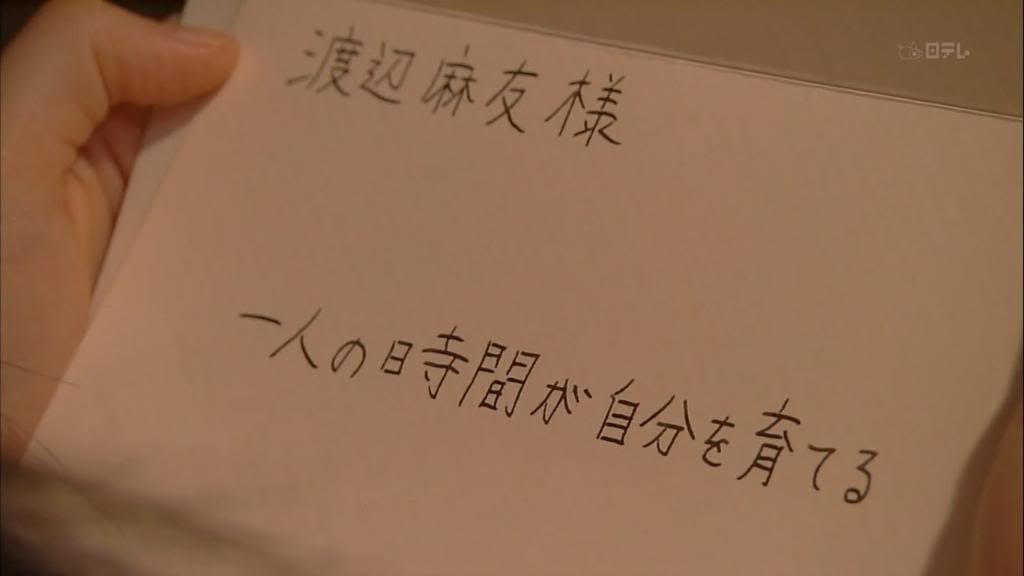 日テレ
渡辺麻友様
一人の時間が自分を育てる